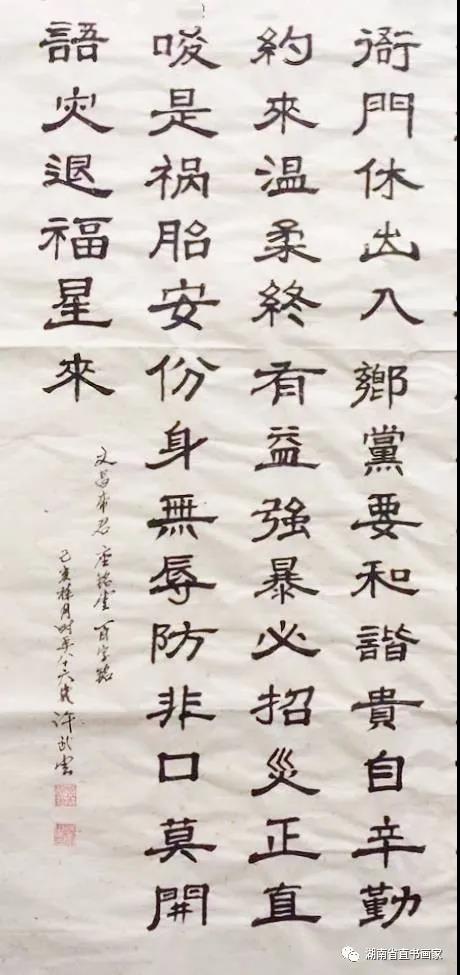 衙門休出入鄉黨要和諧貴自辛勤
約來温柔終有益強暴必招災正直
唆是祸胎安份身無辱防非口莫開
語灾退福星來
文昌帝君 百字銘
己亥 月時年八十六歲 許武雲
湖南省直书画家